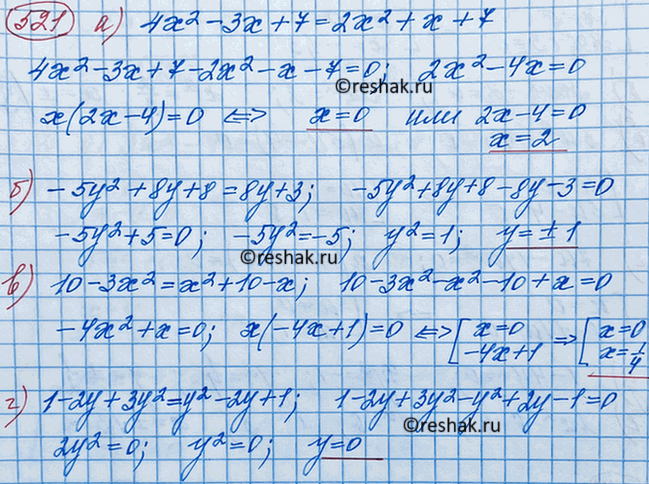 521 а) 4x² - 3x + 7 = 2x² + x + 7
4x² - 3x + 7 - 2x² - x - 7 = 0; 2x² - 4x = 0
©reshak.ru
x(2x - 4) = 0 <=> x = 0 или 2x - 4 = 0
x = 2
б) -5y² + 8y + 8 = 8y + 3; -5y² + 8y + 8 - 8y - 3 = 0
-5y² + 5 = 0; -5y² = -5; y² = 1; y = ± 1
в) 10 - 3x² = x² + 10 - x; 10 - 3x² - x² - 10 + x = 0
-4x² + x = 0; x(-4x + 1) = 0 <=> [ x = 0 => [ x = 0
-4x + 1 x = 1/4
г) 1 - 2y + 3y² = y² - 2y + 1; 1 - 2y + 3y² - y² + 2y - 1 = 0
©reshak.ru
2y² = 0; y² = 0; y = 0